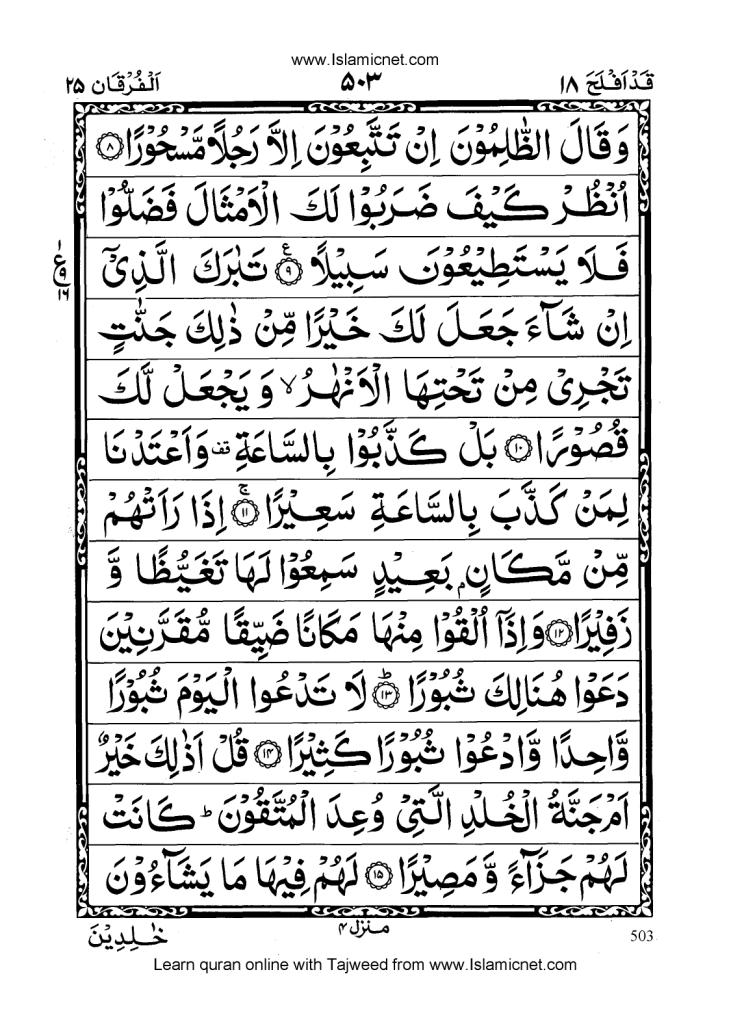 www.Islamicnet.com
قَدْ اَفْلَحَ ١٨ ٥٠٣ اَلْفُرْقَان ٢٥
وَ قَالَ الظّٰلِمُوْنَ اِنْ تَتَّبِعُوْنَ اِلَّا رَجُلًا مَّسْحُوْرًا ۝٨
اُنْظُرْ كَيْفَ ضَرَبُوْا لَكَ الْاَمْثَالَ فَضَلُّوْا
فَلَا يَسْتَطِيْعُوْنَ سَبِيْلًا ۝٩ ع تَبٰرَكَ الَّذِيْٓ
ع ٩ ١٦
اِنْ شَآءَ جَعَلَ لَكَ خَيْرًا مِّنْ ذٰلِكَ جَنّٰتٍ
تَجْرِيْ مِنْ تَحْتِهَا الْاَنْهٰرُ ۙ وَ يَجْعَلْ لَّكَ
قُصُوْرًا ۝١٠ بَلْ كَذَّبُوْا بِالسَّاعَةِ قف وَاَعْتَدْنَا
لِمَنْ كَذَّبَ بِالسَّاعَةِ سَعِيْرًا ۝١١ ۚ اِذَا رَاَتْهُمْ
مِّنْ مَّكَانٍۭ بَعِيْدٍ سَمِعُوْا لَهَا تَغَيُّظًا وَّ
زَفِيْرًا ۝١٢ وَاِذَآ اُلْقُوْا مِنْهَا مَكَانًا ضَيِّقًا مُّقَرَّنِيْنَ
دَعَوْا هُنَالِكَ ثُبُوْرًا ۝١٣ ؕ لَا تَدْعُوا الْيَوْمَ ثُبُوْرًا
وَّاحِدًا وَّادْعُوْا ثُبُوْرًا كَثِيْرًا ۝١٤ قُلْ اَذٰلِكَ خَيْرٌ
اَمْ جَنَّةُ الْخُلْدِ الَّتِيْ وُعِدَ الْمُتَّقُوْنَ ؕ كَانَتْ
لَهُمْ جَزَآءً وَّ مَصِيْرًا ۝١٥ لَهُمْ فِيْهَا مَا يَشَآءُوْنَ
خٰلِدِيْنَ منزل ٤ 503
Learn quran online with Tajweed from www.Islamicnet.com